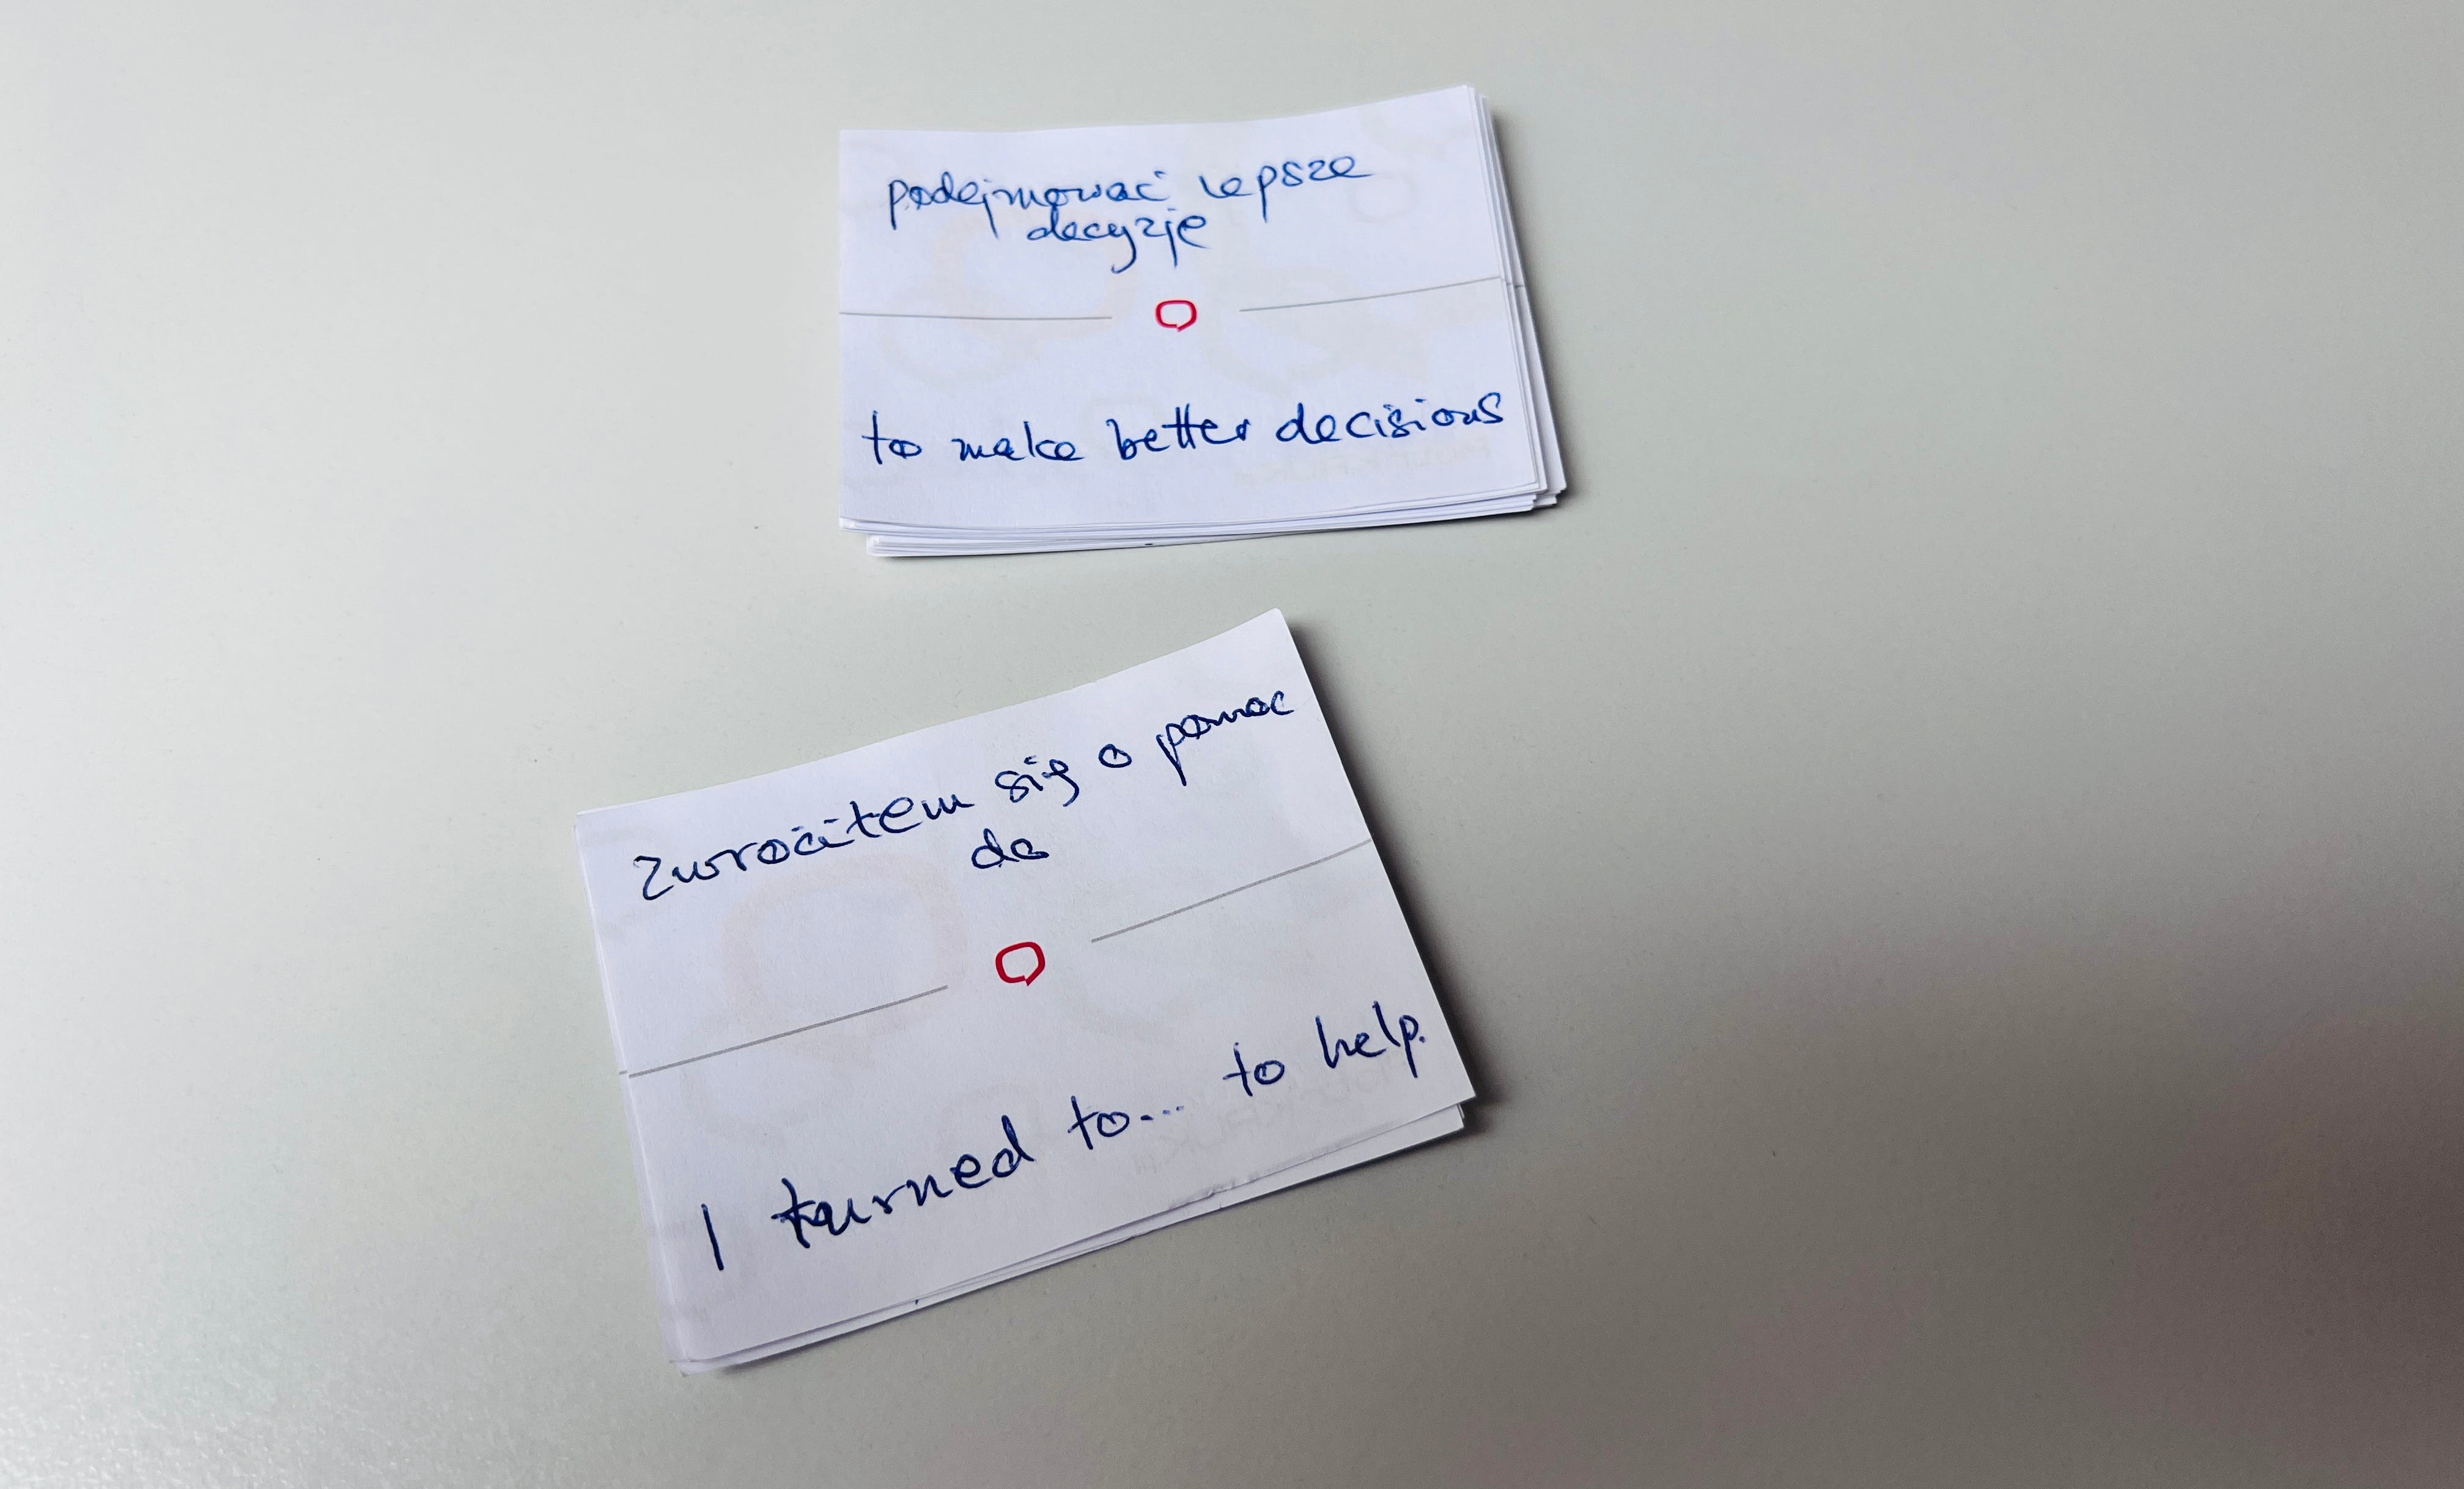 podejmować lepsze
decyzje
to make better decisions
Zwróciłem się o pomoc
do
I turned to... to help.